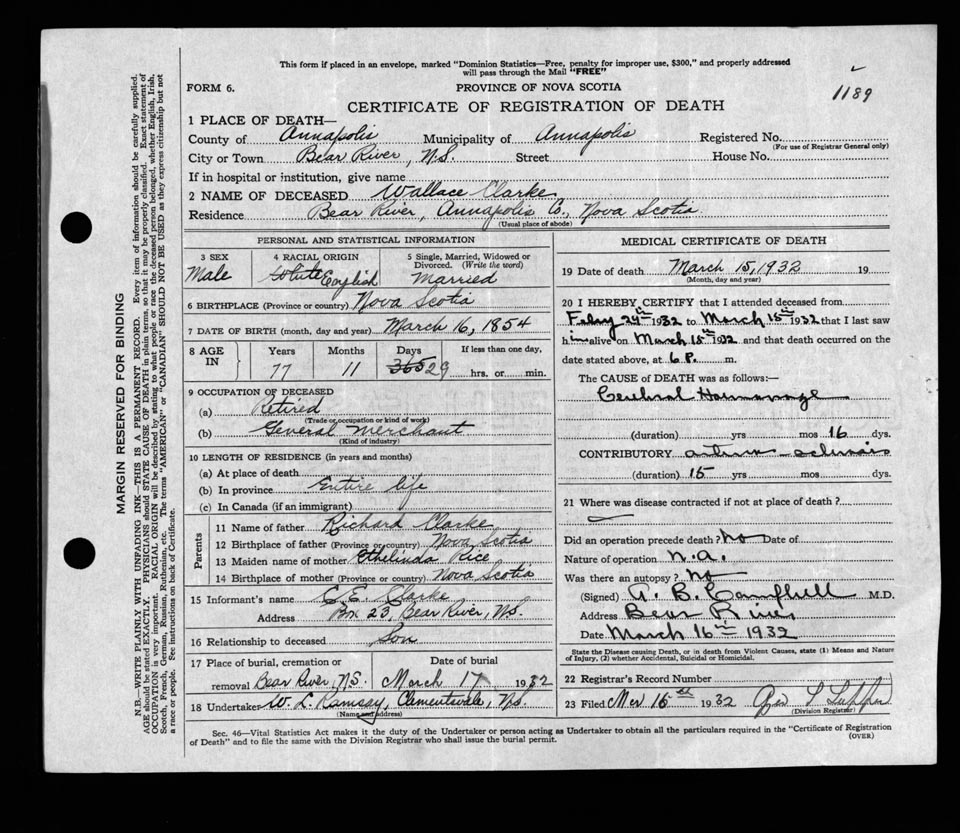 This form if placed in an envelope, marked "Dominion Statistics—Free, penalty for improper use, $300," and properly addressed
will pass through the Mail "FREE"
1189
FORM 6.
PROVINCE OF NOVA SCOTIA
CERTIFICATE OF REGISTRATION OF DEATH
1 PLACE OF DEATH—
County of Annapolis Municipality of Annapolis Registered No.
(For use of Registrar General only)
City or Town Bear River, N.S. Street House No.
If in hospital or institution, give name
2 NAME OF DECEASED Wallace Clarke
Residence Bear River, Annapolis Co., Nova Scotia
(Usual place of abode)
PERSONAL AND STATISTICAL INFORMATION
3 SEX 4 RACIAL ORIGIN 5 Single, Married, Widowed or
Divorced. (Write the word)
Male White English Married
6 BIRTHPLACE (Province or country) Nova Scotia
7 DATE OF BIRTH (month, day and year) March 16, 1854
8 AGE IN Years Months Days If less than one day,
77 11 365 29 hrs. or min.
9 OCCUPATION OF DECEASED
(a) Retired
(Trade or occupation or kind of work)
(b) General Merchant
(Kind of industry)
10 LENGTH OF RESIDENCE (in years and months)
(a) At place of death
(b) In province Entire life
(c) In Canada (if an immigrant)
Parents
11 Name of father Richard Clarke
12 Birthplace of father (Province or country) Nova Scotia
13 Maiden name of mother Ethelinda Rice
14 Birthplace of mother (Province or country) Nova Scotia
15 Informant's name C. E. Clarke
Address Box 23, Bear River, N.S.
16 Relationship to deceased Son
17 Place of burial, cremation or Date of burial
removal Bear River, N.S. March 17 1932
18 Undertaker W. L. Ramsay, Clementsvale, N.S.
(Name and address)
MEDICAL CERTIFICATE OF DEATH
19 Date of death March 15, 1932 19
(Month, day and year)
20 I HEREBY CERTIFY that I attended deceased from
Feby 24th 1932 to March 15th 1932 that I last saw
him alive on March 15th 1932 and that death occurred on the
date stated above, at 6 P. m.
The CAUSE of DEATH was as follows:—
Cerebral Hemorrhage
(duration) yrs mos 16 dys.
CONTRIBUTORY
(duration) 15 yrs mos dys.
21 Where was disease contracted if not at place of death?
Did an operation precede death? no Date of
Nature of operation n.a.
Was there an autopsy? no
(Signed) A. B. Campbell M.D.
Address Bear River
Date March 16th 1932
State the Disease causing Death, or in death from Violent Causes, state (1) Means and Nature
of Injury, (2) whether Accidental, Suicidal or Homicidal.
22 Registrar's Record Number
23 Filed Mar 1932
(Division Registrar)
Sec. 46—Vital Statistics Act makes it the duty of the Undertaker or person acting as Undertaker to obtain all the particulars required in the "Certificate of Registration
of Death" and to file the same with the Division Registrar who shall issue the burial permit.
(OVER)
MARGIN RESERVED FOR BINDING
N.B.—WRITE PLAINLY WITH UNFADING INK—THIS IS A PERMANENT RECORD. Every item of information should be carefully supplied.
AGE should be stated EXACTLY. PHYSICIANS should STATE CAUSE OF DEATH in plain terms, so that it may be properly classified. Exact statement of
OCCUPATION is very important. RACIAL ORIGIN will be described by stating to what people or race the deceased person belonged, whether English, Irish,
Scotch, French, German, Russian, Ruthenian, etc. The terms "AMERICAN" or "CANADIAN" SHOULD NOT BE USED as they express citizenship but not
a race or people. See instructions on back of Certificate.